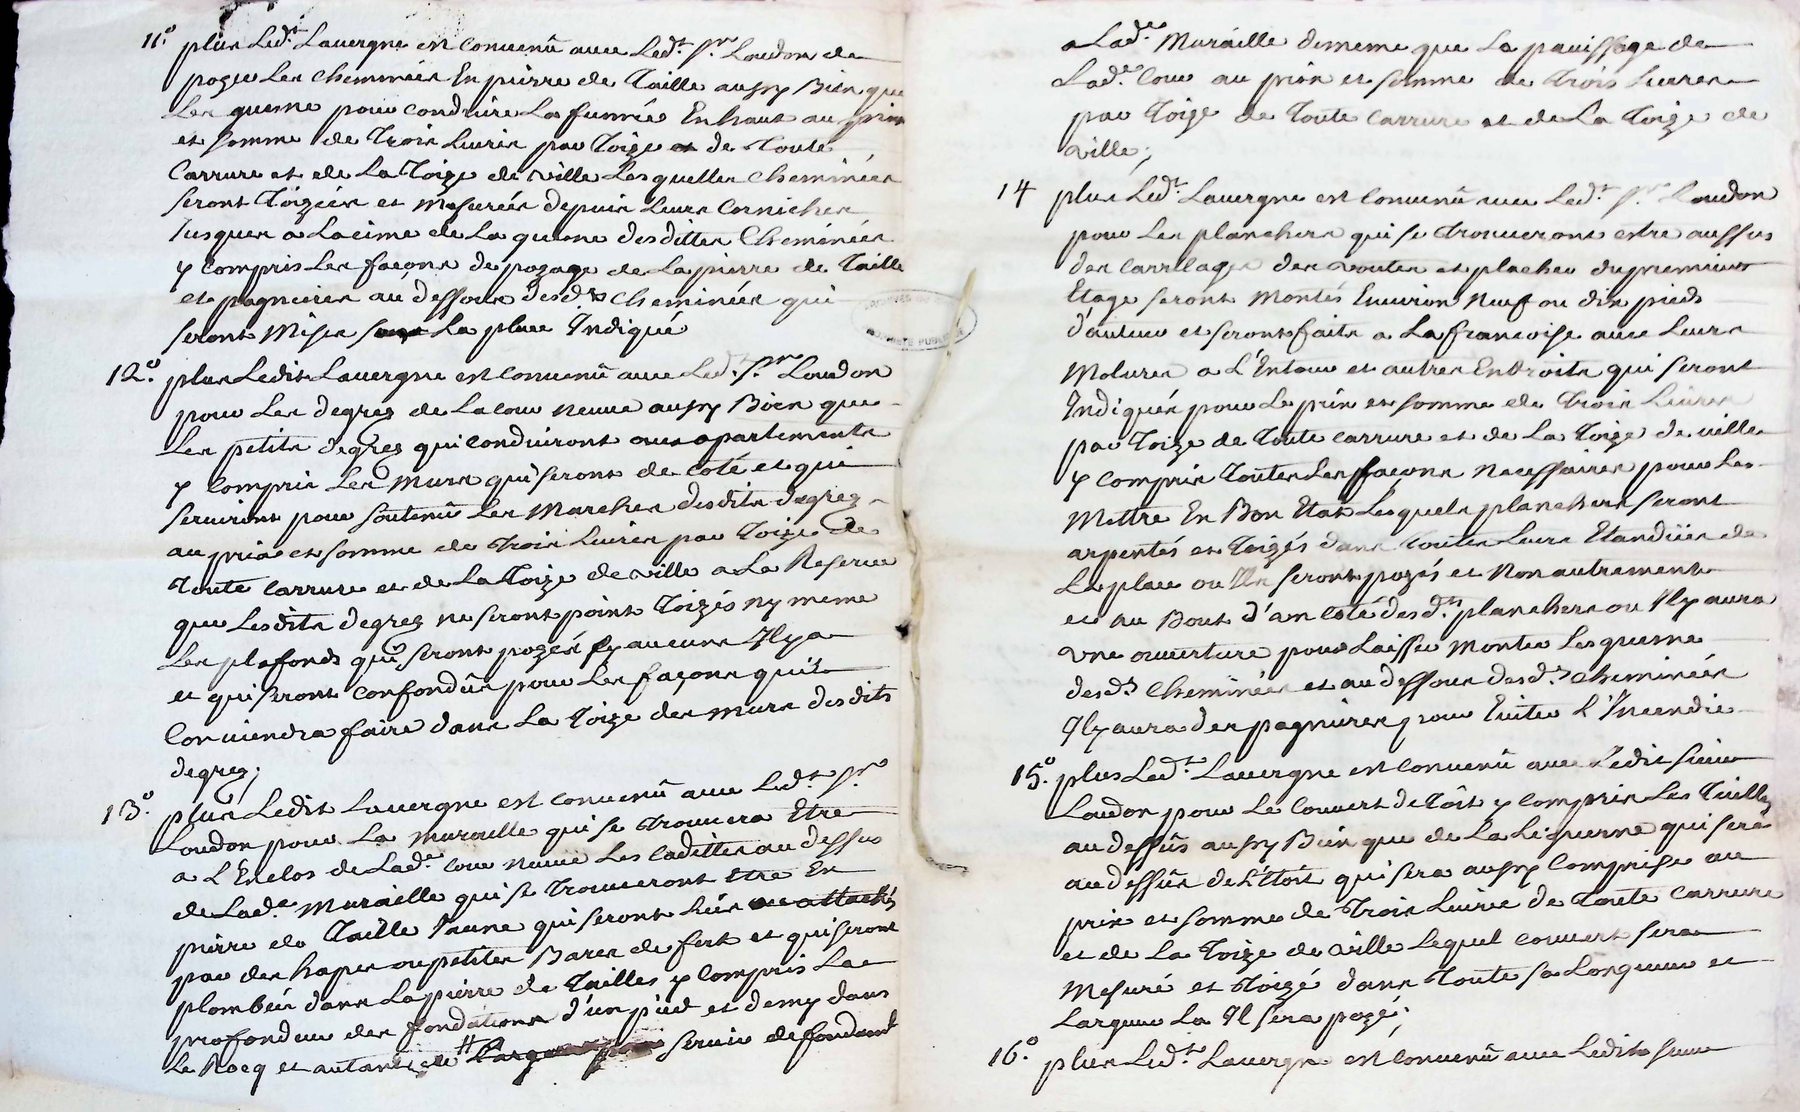 11.° plus Led.t Lauergne est Conuenû auec Led.t S.r Loudon de
pozer Les Cheminées En pierre de Taille aussy Bien que
Les quesne pour conduire La fumée En haut au prix
et somme de Trois Liures par Toize et de Toute
Carrure et de La Toize de ville Lesquelles Cheminées
seront Toizées et Mesurées depuis Leurs Corniches
Jusques a Lacime de La quesne desdittes Cheminées
y compris Les façons de pozage de La pierre de Taille
et pagnieres au dessous desd.ts Cheminées qui
seront Mises sur La place Indiqué
12.° plus Ledit Lauergne est Conuenû auec Led. S.r Loudon
pour Les degrez de La cour neuue aussy Bien que
Les petits degrez qui conduiront aux apartements
y compris Les murs qui seront de coté et qui
seruiront pour soutenir Les Marches desdits degrez
au prix et somme de Trois Liures par Toize de
Toute Carrure et de La Toize de ville a La Reserue
que Lesdits degrez ne seront point Toizés ny meme
Les plafonds qui seront pozés sy aucuns Il y a
et qui seront Confondûs pour Les façons quil
Conuiendra faire dans La Toize des murs desdits
degrez;
13.° plus Ledit Lauergne est Conuenû auec Led.t S.r
Loudon pour La muraille qui se Trouuera Etre
a L'Enclos de Lad.e Cour neuue Les Cadittes au dessus
de Lad.e Muraille qui se Trouueront Etre En
pierre de Taille Jaune qui seront Liés ou attachés
par des hapes ou petites Bares de fert et qui seront
plombés dans La pierre de Tailles y compris La
profondeur des fondations d'un pied et demy dans
Le Rocq et autant de seruir de fondant
a Lad.e Muraille dememe que La pauissage de
Lad.e Cour au prix et somme de Trois Liures
par Toize de Toute Carrure et de La Toize de
ville;
14 plus Led.t Lauergne est Conuenû auec Led.t S.r Loudon
pour Les planchers qui se Trouueront estre au dessus
des Carrelages des voutes et placher du premier
Etage seront Montés Enuiron Neuf ou dix pieds
d'auteur et seront faits a La francoise auec Leurs
Molures a L'Entour et autres Endroits qui seront
Indiqués pour Le prix et somme de Trois Liures
par Toize de Toute Carrure et de La Toize de ville
y compris Toutes Les façons Necessaires pour Les
Mettre En Bon Etat Lesquels planchers seront
arpentés et Toizés dans Toutes Leurs Etandües de
La place ou Ils seront pozés et Non autrement
et au Bout d'un coté desd.ts planchers ou Il y aura
vne ouuerture pour Laisser Monter Les quesne
desd.ts Cheminées et au dessous desd.ts Cheminées
Il y aura des pagnieres pour Euiter L'Incendie
15.° plus Led.t Lauergne est Conuenû auec Ledit sieur
Loudon pour Le Couuert de Toit y compris Les Tuilles
au dessûs aussy Bien que de La qui sera
au dessûs de L'Etoit qui sera aussy Comprise au
prix et somme de Trois Liures de Toute Carrure
et de La Toize de ville Lequel couuert sera
Mesuré et Toizé dans Toute sa Longueur et
Largeur La Il sera pozé;
16.° plus Led.t Lauergne est Conuenû auec Ledit sieur